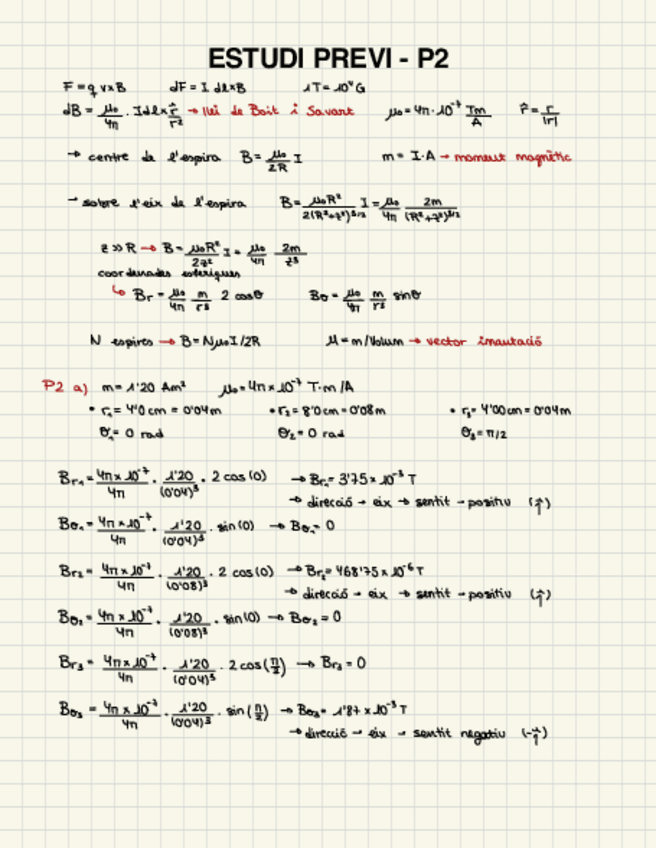 ESTUDI PREVI - P2
F = q v×B dF = I dl×B 1T = 10⁴G
dB = μ₀/4π · Idl× r̂/r² → llei de Boit i Savart μ₀ = 4π·10⁻⁷ Tm/A r̂ = r/|r|
→ centre de l'espira B = μ₀/2R I m = I·A → moment magnètic
→ sobre l'eix de l'espira B = μ₀R²/2(R²+z²)^3/2 I = μ₀/4π 2m/(R²+z²)^3/2
z >> R → B = μ₀R²/2z² I = μ₀/4π 2m/z³
coordenades esfèriques
↳ Br = μ₀/4π m/r³ 2 cosθ Bθ = μ₀/4π m/r³ sinθ
N espires → B = Nμ₀I/2R M = m/Volum → vector imantació
P2 a) m = 1'20 Am² μ₀ = 4π×10⁻⁷ T·m/A
• r₁ = 4'0 cm = 0'04m • r₂ = 8'0 cm = 0'08m • r₃ = 4'00 cm = 0'04m
θ₁ = 0 rad θ₂ = 0 rad θ₃ = π/2
Br₁ = 4π×10⁻⁷/4π · 1'20/(0'04)³ · 2 cos(0) → Br₁ = 3'75×10⁻³ T
→ direcció → eix → sentit → positiu (↑)
Bθ₁ = 4π×10⁻⁷/4π · 1'20/(0'04)³ · sin(0) → Bθ₁ = 0
Br₂ = 4π×10⁻⁷/4π · 1'20/(0'08)³ · 2 cos(0) → Br₂ = 468'75×10⁻⁶ T
→ direcció → eix → sentit → positiu (↑)
Bθ₂ = 4π×10⁻⁷/4π · 1'20/(0'08)³ · sin(0) → Bθ₂ = 0
Br₃ = 4π×10⁻⁷/4π · 1'20/(0'04)³ · 2 cos(π/2) → Br₃ = 0
Bθ₃ = 4π×10⁻⁷/4π · 1'20/(0'04)³ · sin(π/2) → Bθ₃ = 1'87×10⁻³ T
→ direcció → eix → sentit negatiu (-↑)